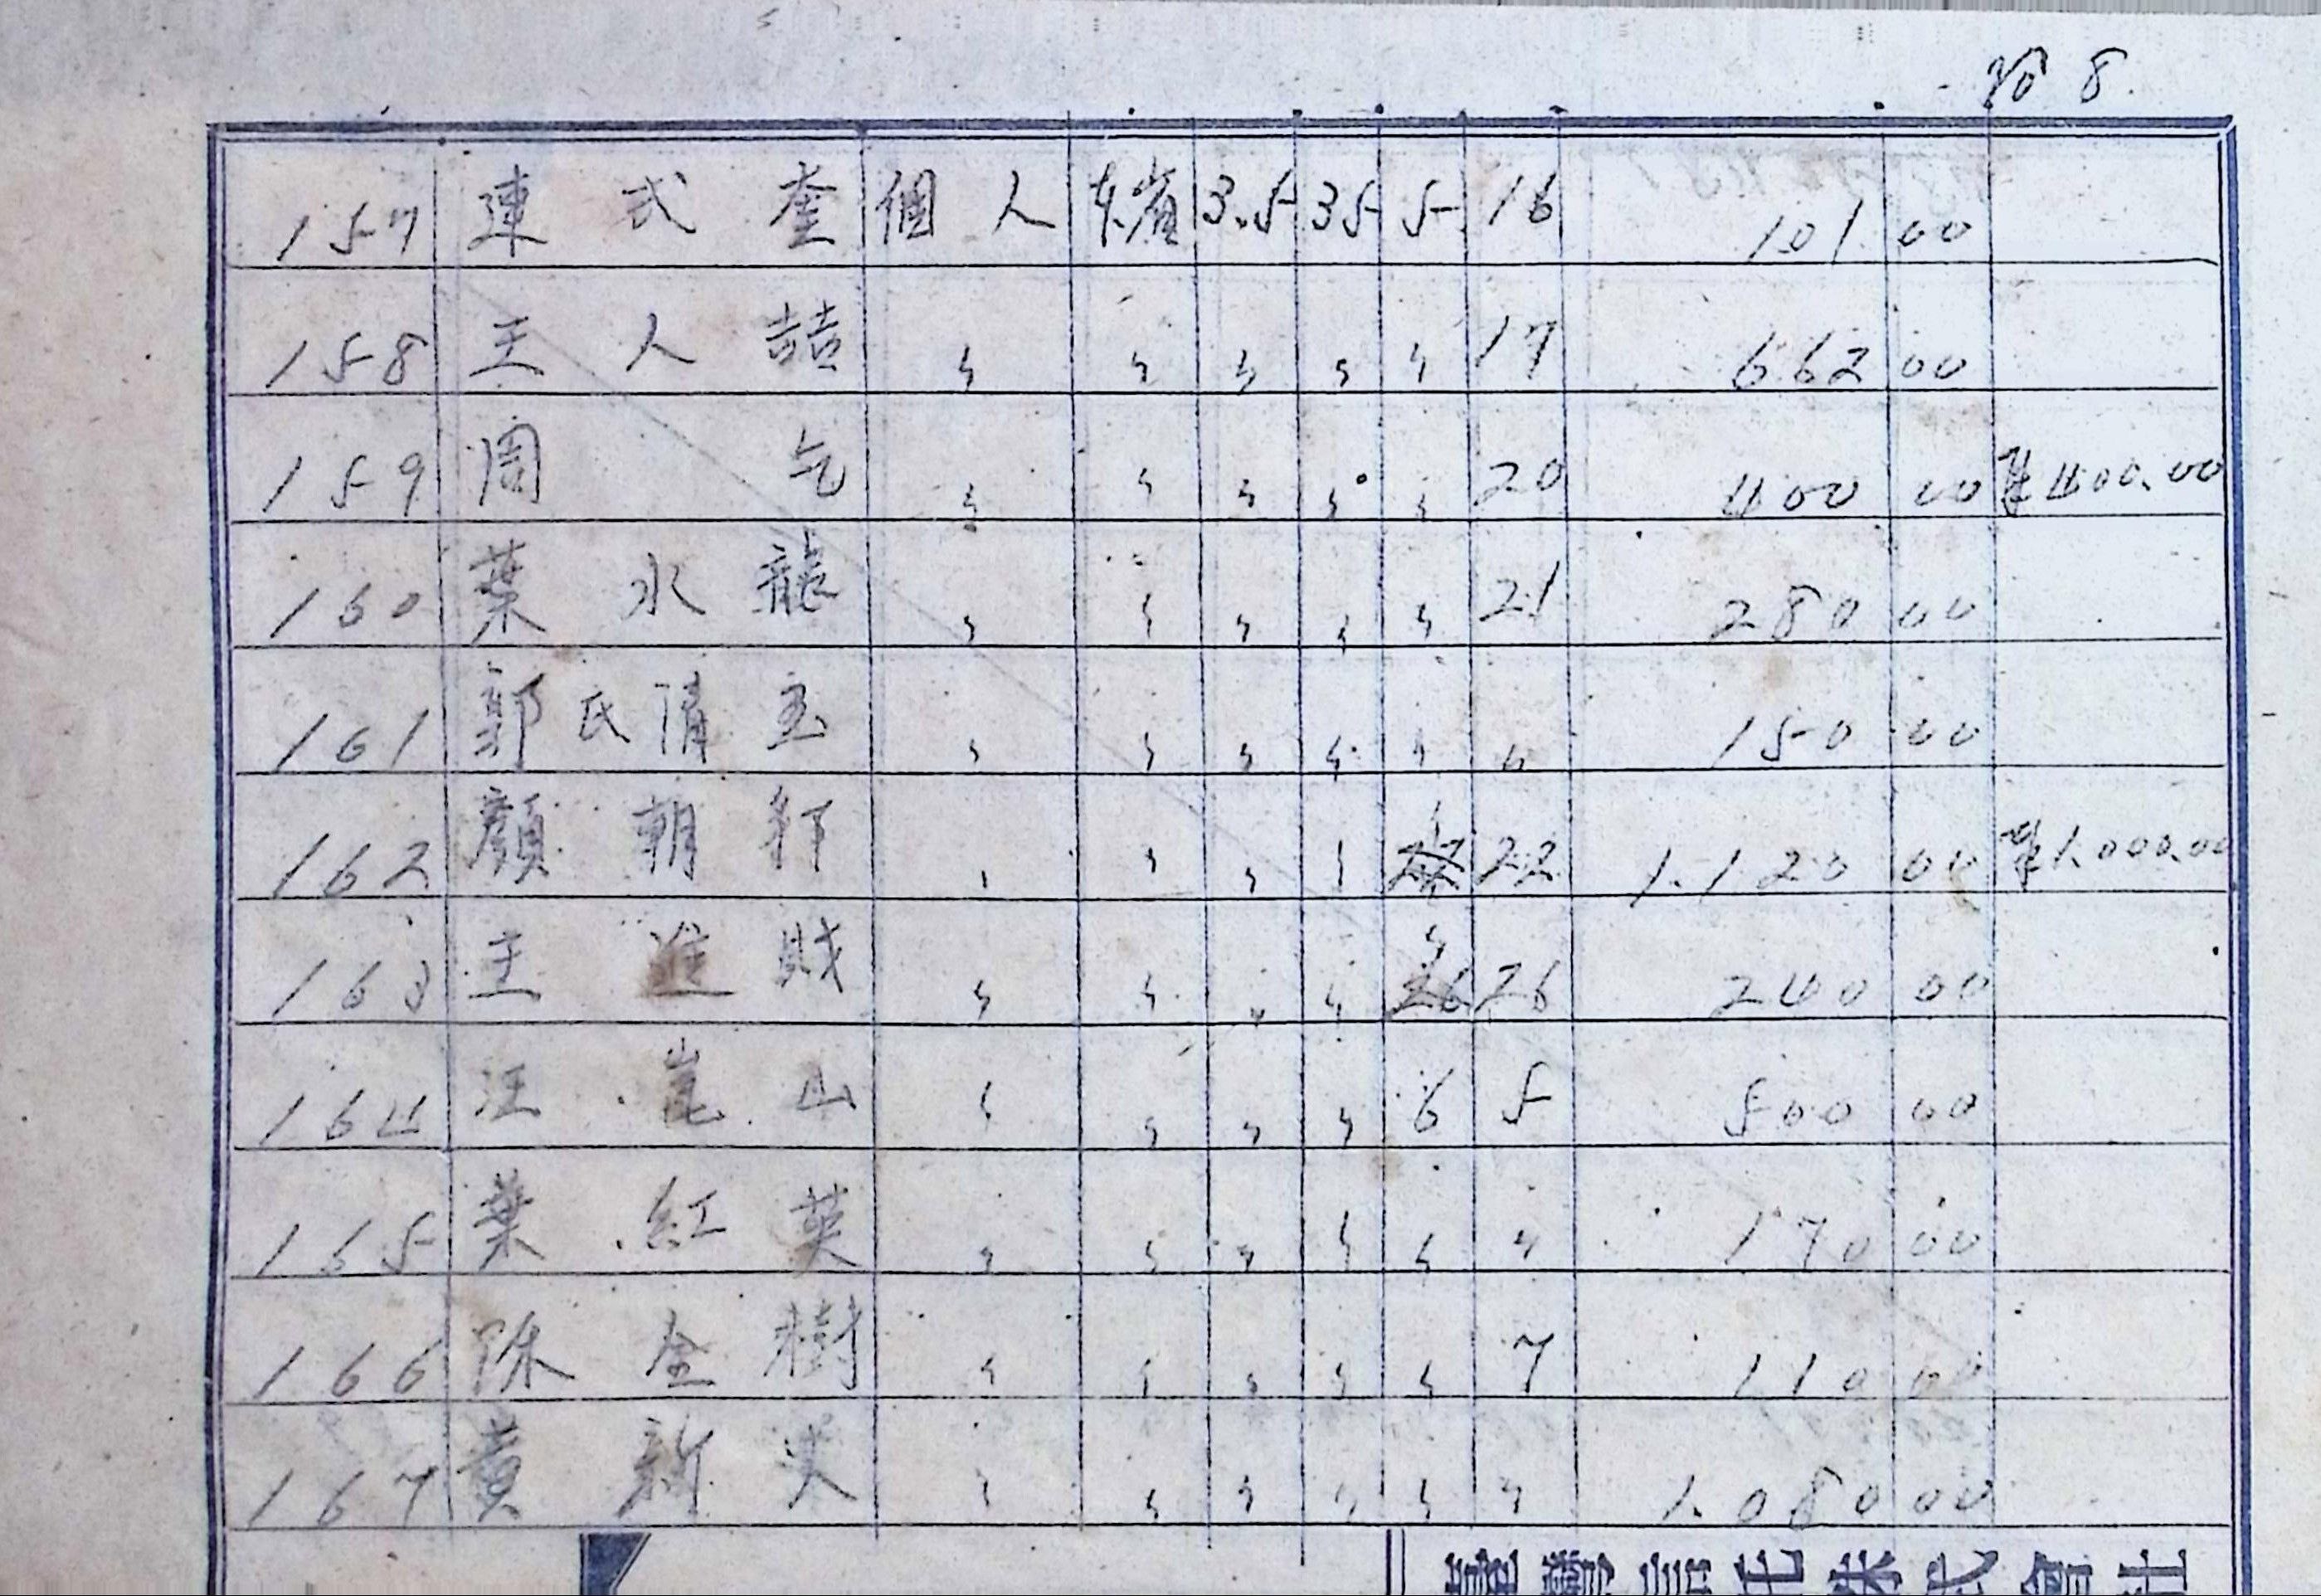 No 8.
157 連 式 奎 個 人 3.5 35 5 16 101 00
158 王 人 喆 〃 〃 〃 〃 〃 17 662 00
159 周 乞 〃 〃 〃 〃 〃 20 400 00 400.00
160 葉 水 龍 〃 〃 〃 〃 〃 21 280 00
161 郭 氏 清 玉 〃 〃 〃 〃 〃 〃 150 00
162 顏 朝 〃 〃 〃 〃 〃 22 1.120 00 1.000.00
163 王 進 財 〃 〃 〃 〃 〃 26 240 00
164 汪 崑 山 〃 〃 〃 〃 6 5 500 00
165 葉 紅 英 〃 〃 〃 〃 〃 〃 170 00
166 陳 金 樹 〃 〃 〃 〃 〃 7 110 00
167 黄 新 〃 〃 〃 〃 〃 〃 1.080 00
株式會社